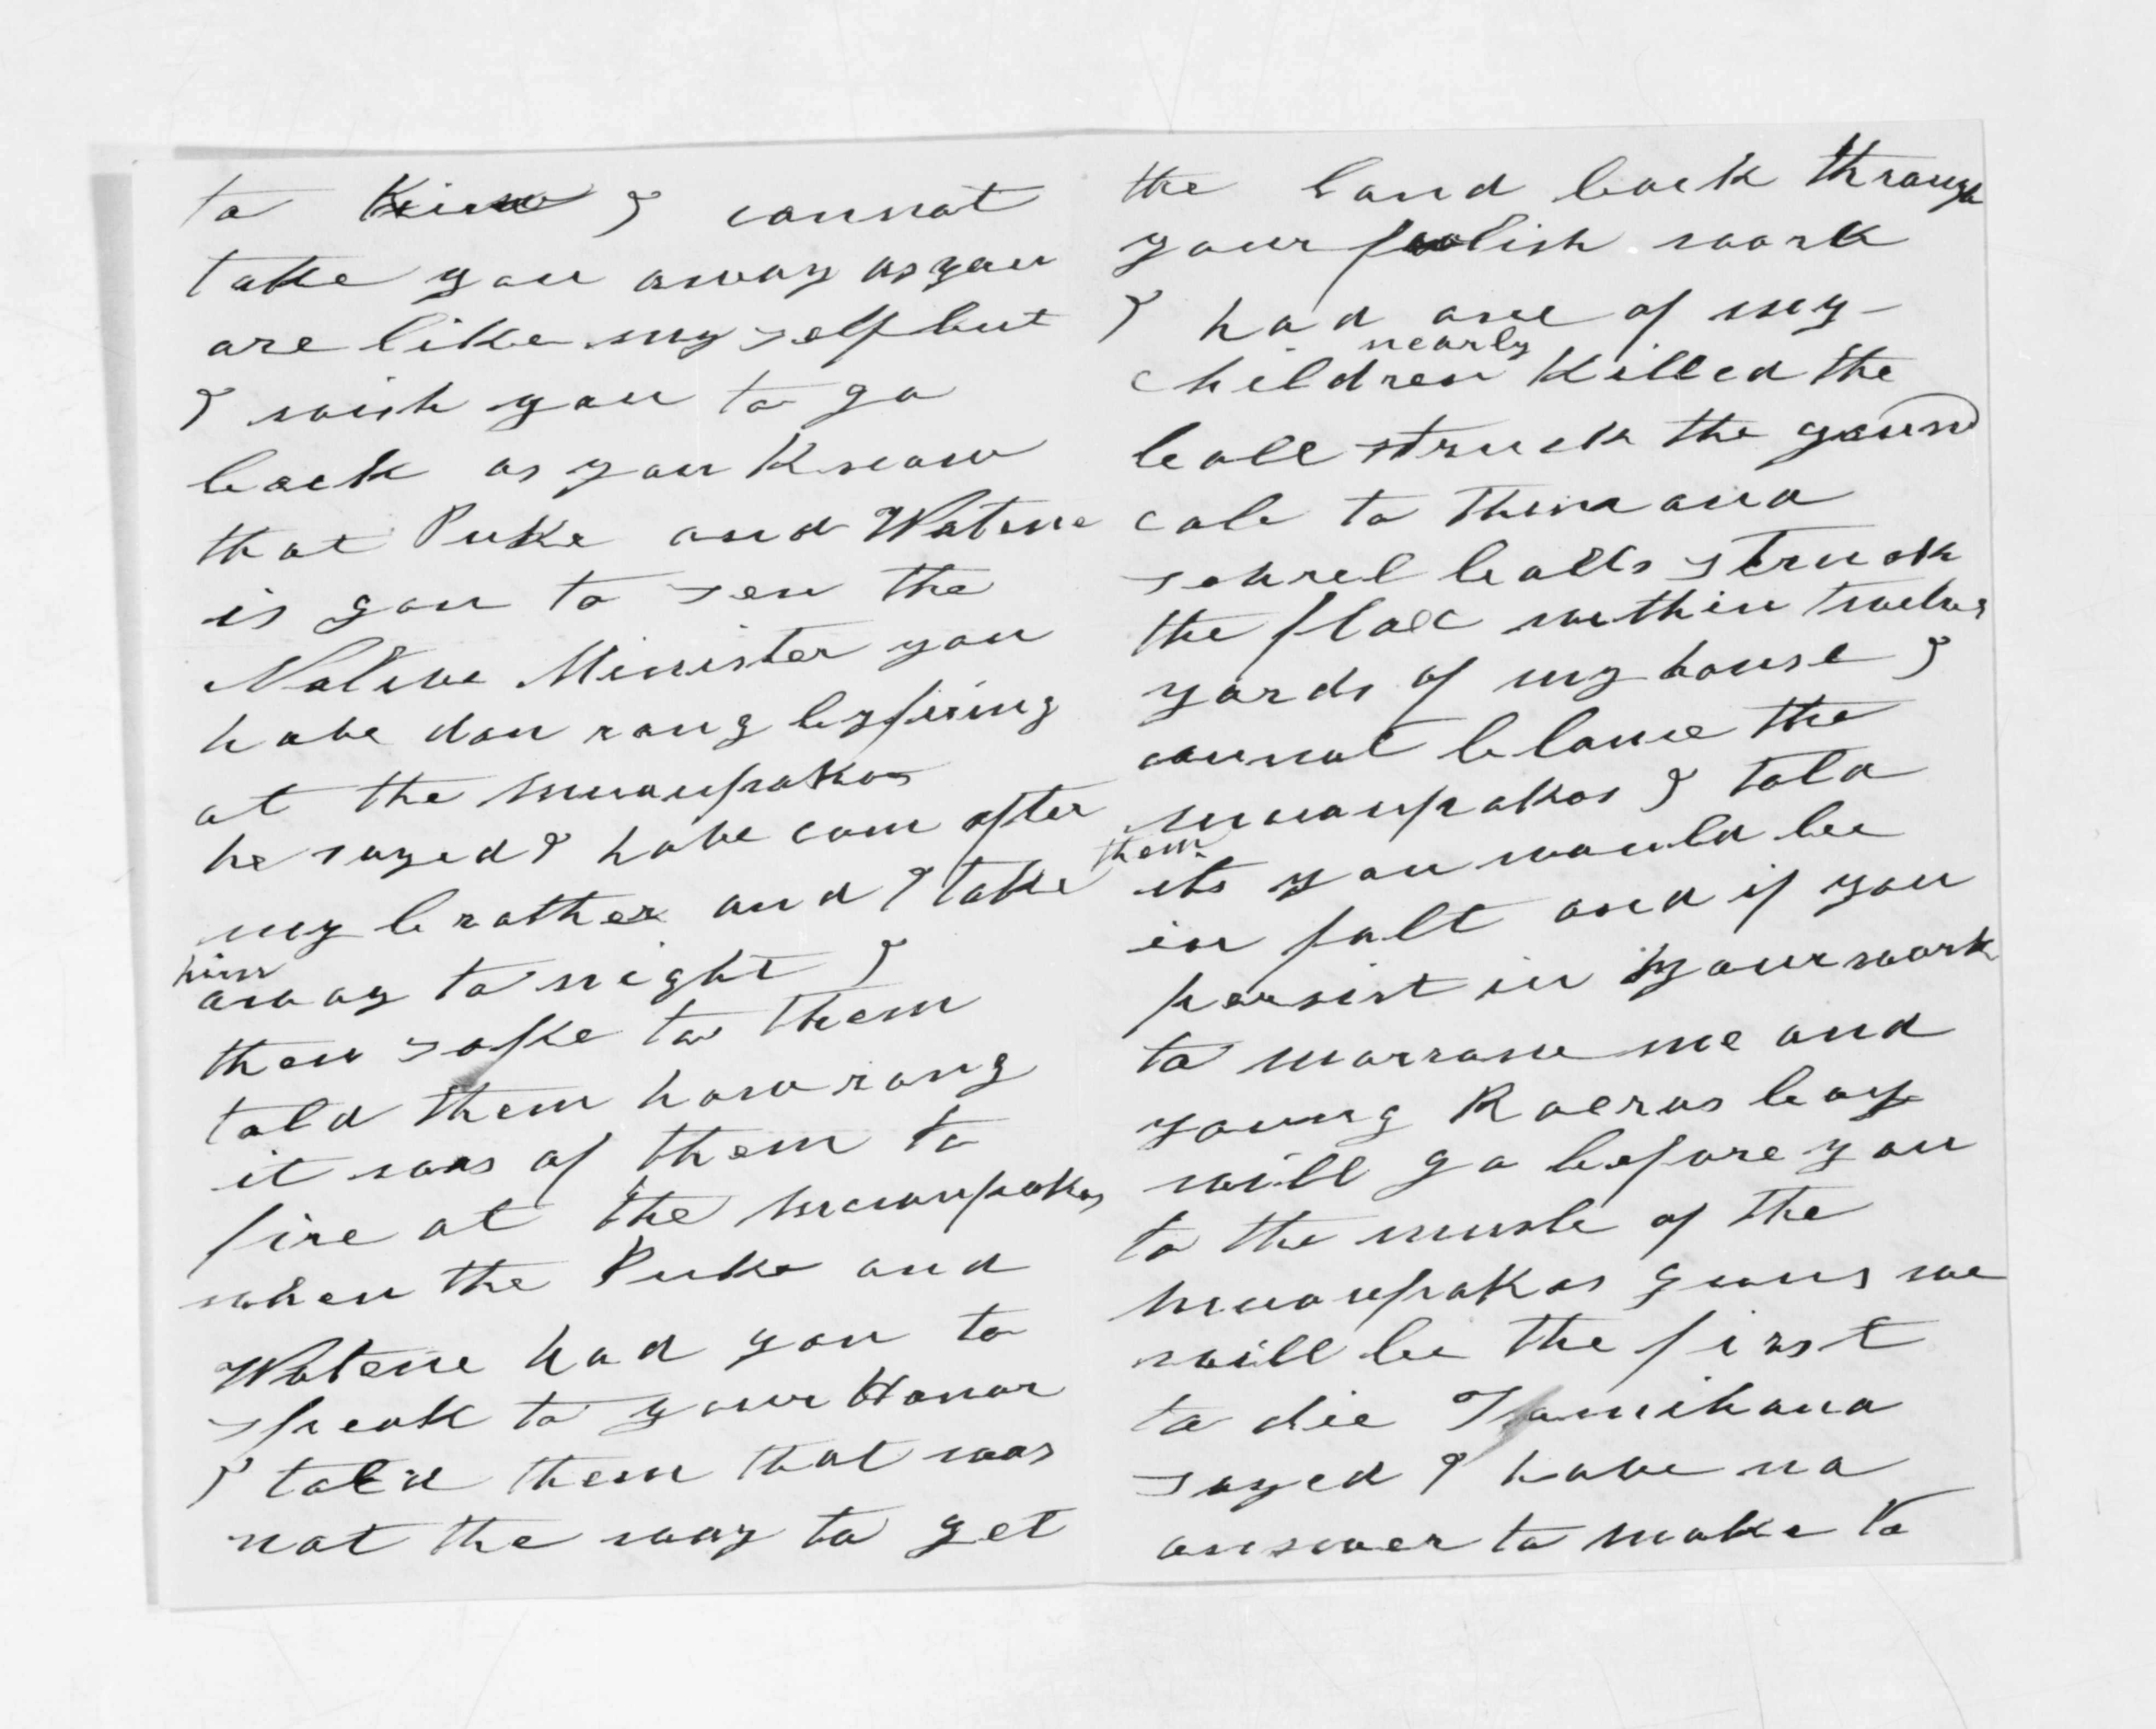 to I cannot
take you away as you
are like my self but
I wish you to go
back as you Know
that Puke and Watene
is gon to see the
Native Minister you
have don rong by firing
at the muaupokos
he sayed I have com after
my brother and I take
him
away to night I
then spoke to them
told them how rong
it was of them to
fire at the muaupokos
when the Puke and
Watene had gon to
speak to your Honor
I told them that was
not the way to get
the land back through
your foolish work
I had one of my
nearly
children Killed the
ball struck the ground
cole to them and
sevrel balls struck
the flax within twelve
yards of my house I
cannot blame the
muaupokos I told
them
its you would be
in falt and if you
persist in your work
to morrow me and
young Roeras boy
will go before you
to the musle of the
muaupokos guns we
will be the first
to die Tamihana
sayed I have no
answer to make to